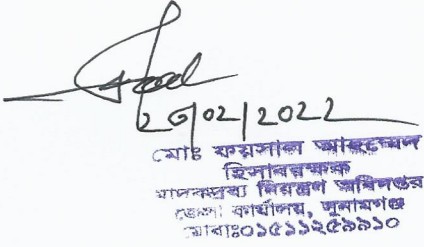 02/2022
মোঃ ফয়সাল
হিসাবরক্ষক
মাদকদ্রব্য নিয়ন্ত্রণ অধিদপ্তর
জেলা কার্যালয়, সুনামগঞ্জ
মোবাঃ০১৫১১২৫৯৯১০